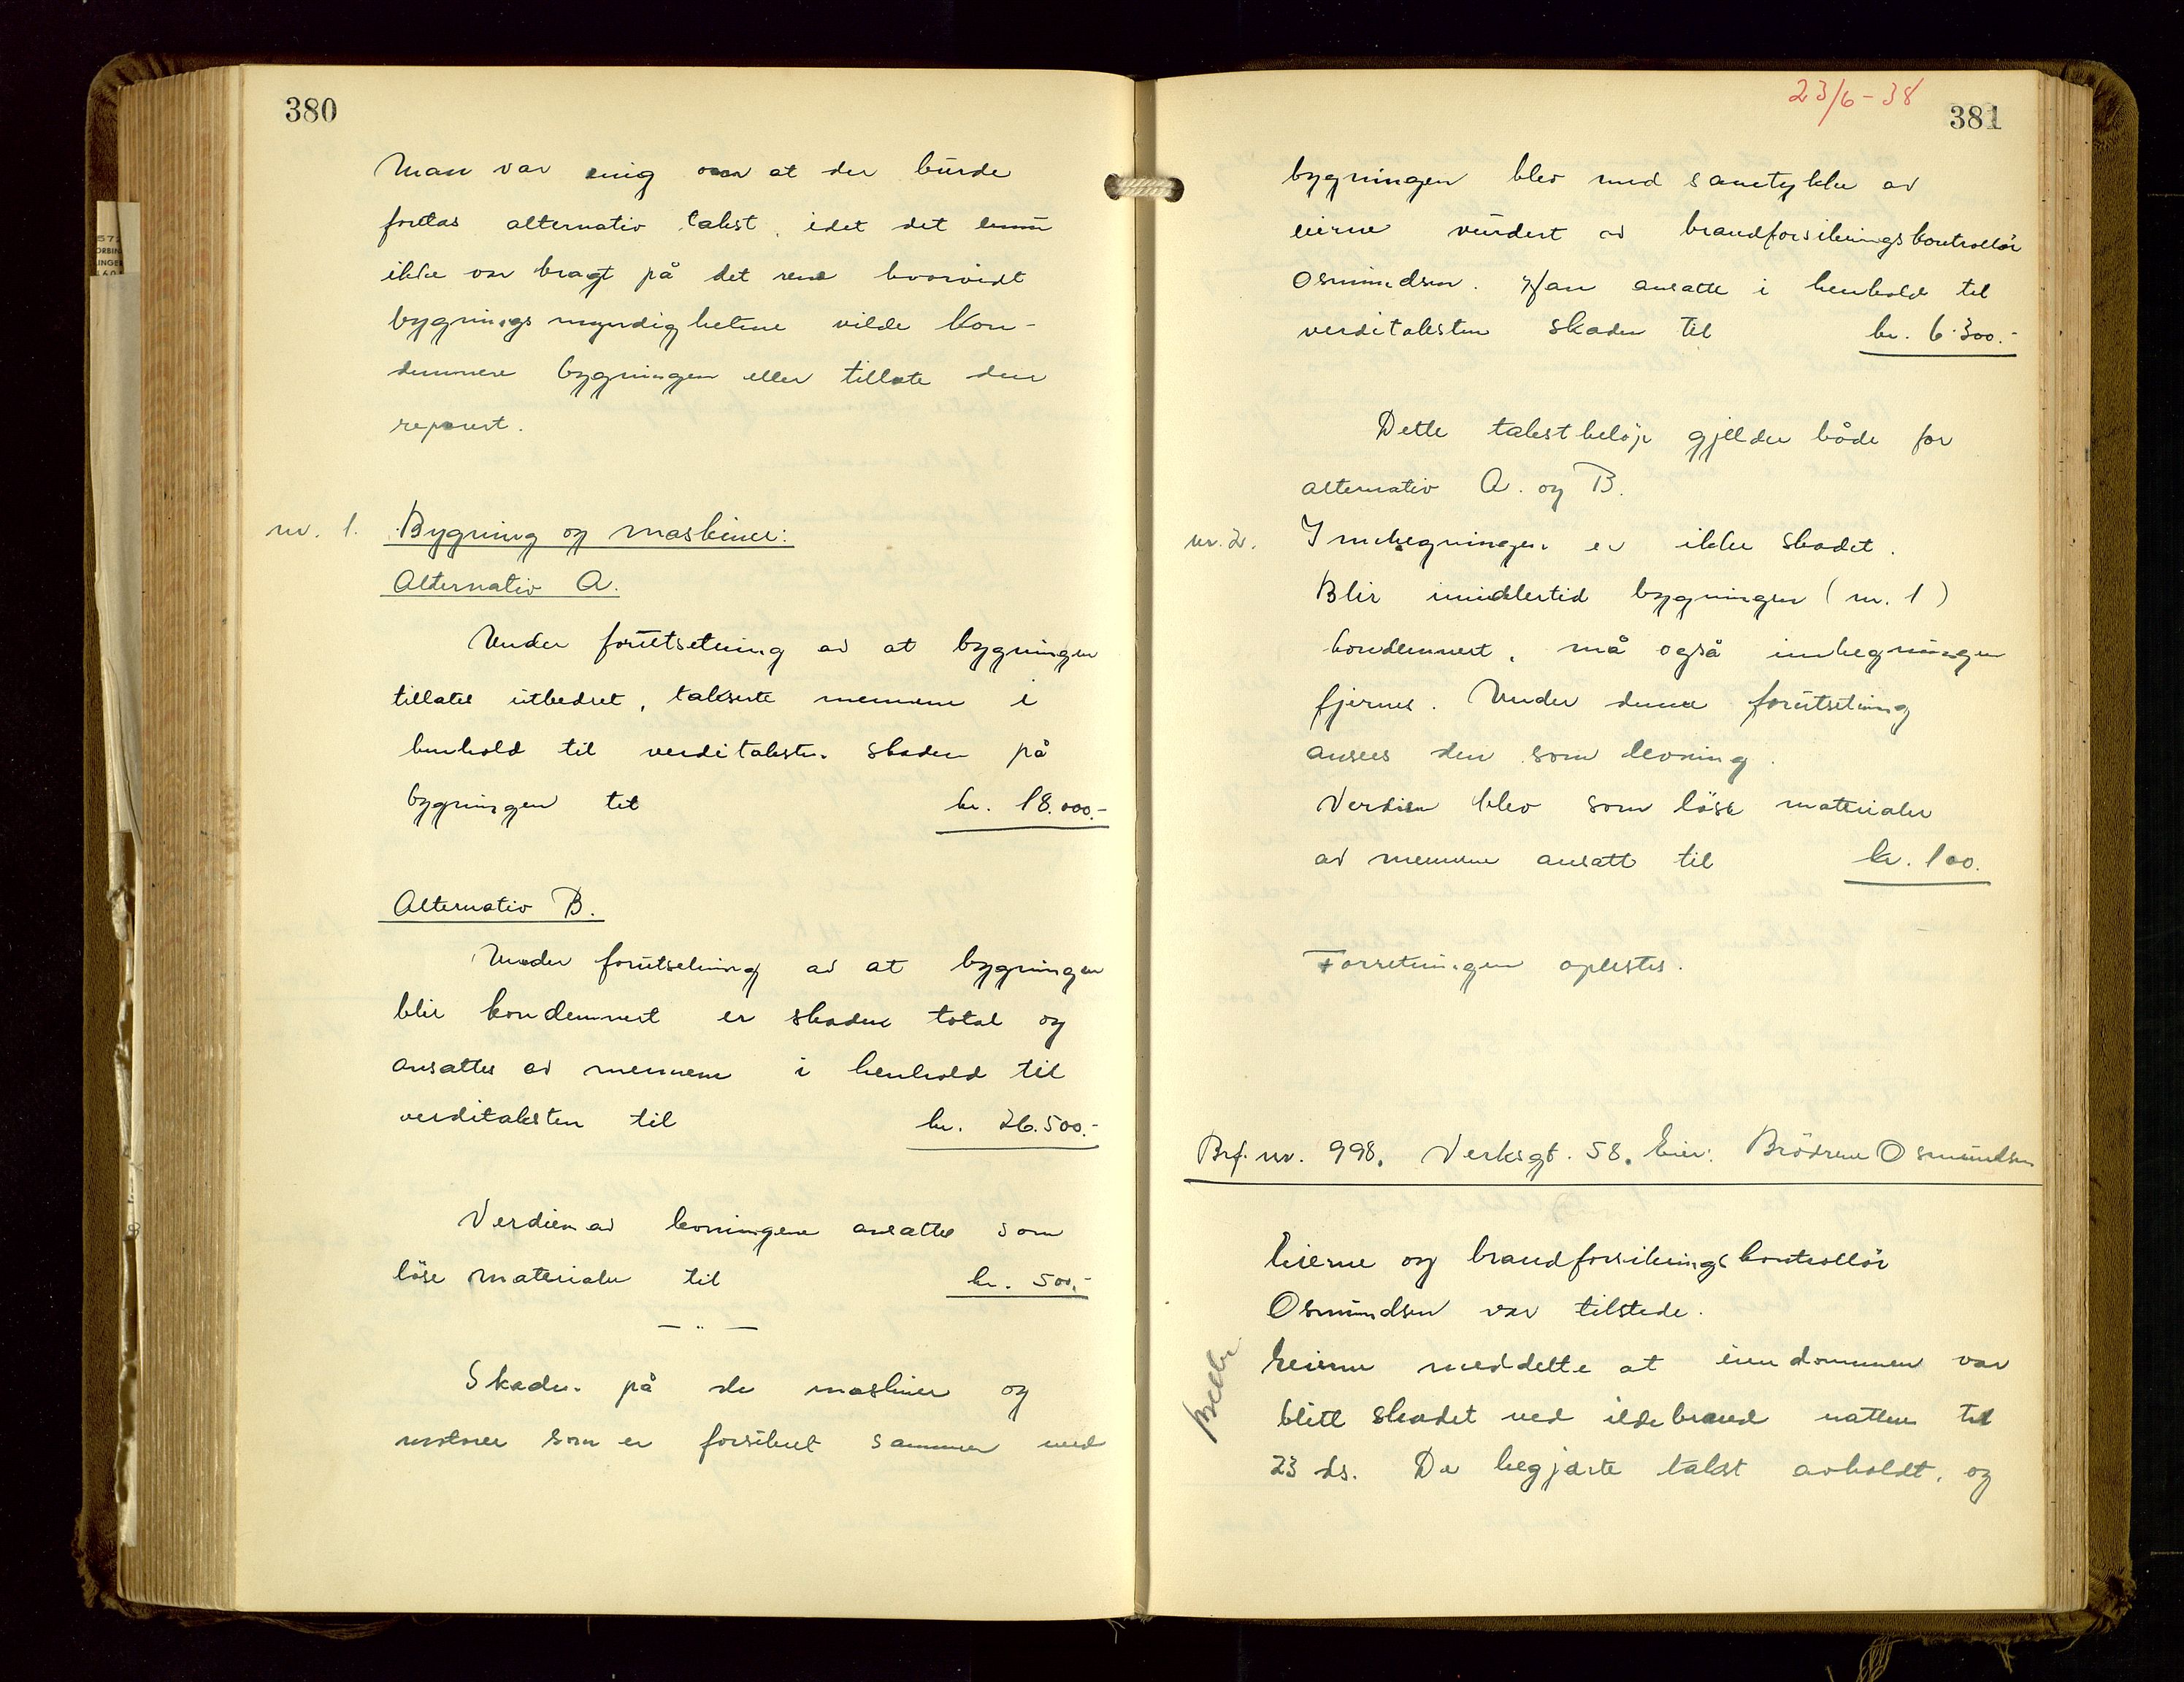 380
Man var enig om at der burde
foretas alternativ takst, idet det ennu
ikke var bragt på det rene hvorvidt
bygningsmyndighetene vilde kon-
demnere bygningen eller tillate den
reparert.
nr. 1. Bygning og maskiner:
Alternativ A.
Under forutsetning av at bygningen
tillates utbedret, takserte mennene i
henhold til verditaksten skaden på
bygningen til kr. 18.000.-
Alternativ B.
Under forutsetning av at bygningen
blir kondemnert er skaden total og
ansattes av mennene i henhold til
verditaksten til kr. 26.500.-
Verdien av levningene ansattes som
löse materialer til kr. 500.-
— " —
Skaden på de maskiner og
motorer som er forsikret sammen med
23/6-38
381
bygningen blev med samtykke av
eierne vurdert av brandforsikringskontrollör
Osmundsen. Han ansatte i henhold til
verditaksten skaden til kr. 6.300.-
Dette takstbelöp gjelder både for
alternativ A. og B.
nr. 2. Innhegningen er ikke skadet.
Blir imidlertid bygningen (nr. 1)
kondemnert, må også innhegningen
fjernes. Under denne forutsetning
ansees den som levning.
Verdien blev som löse materialer
av mennene ansatt til kr. 100.
Forretningen oplestes.
Brf. nr. 998. Verksgt. 58. Eier: Brödrene Osmundsen
Eierne og brandforsikringskontrollör
Osmundsen var tilstede.
Eierne meddelte at eiendommen var
blitt skadet ved ildebrand natten til
23 ds. De begjærte takst avholdt, og